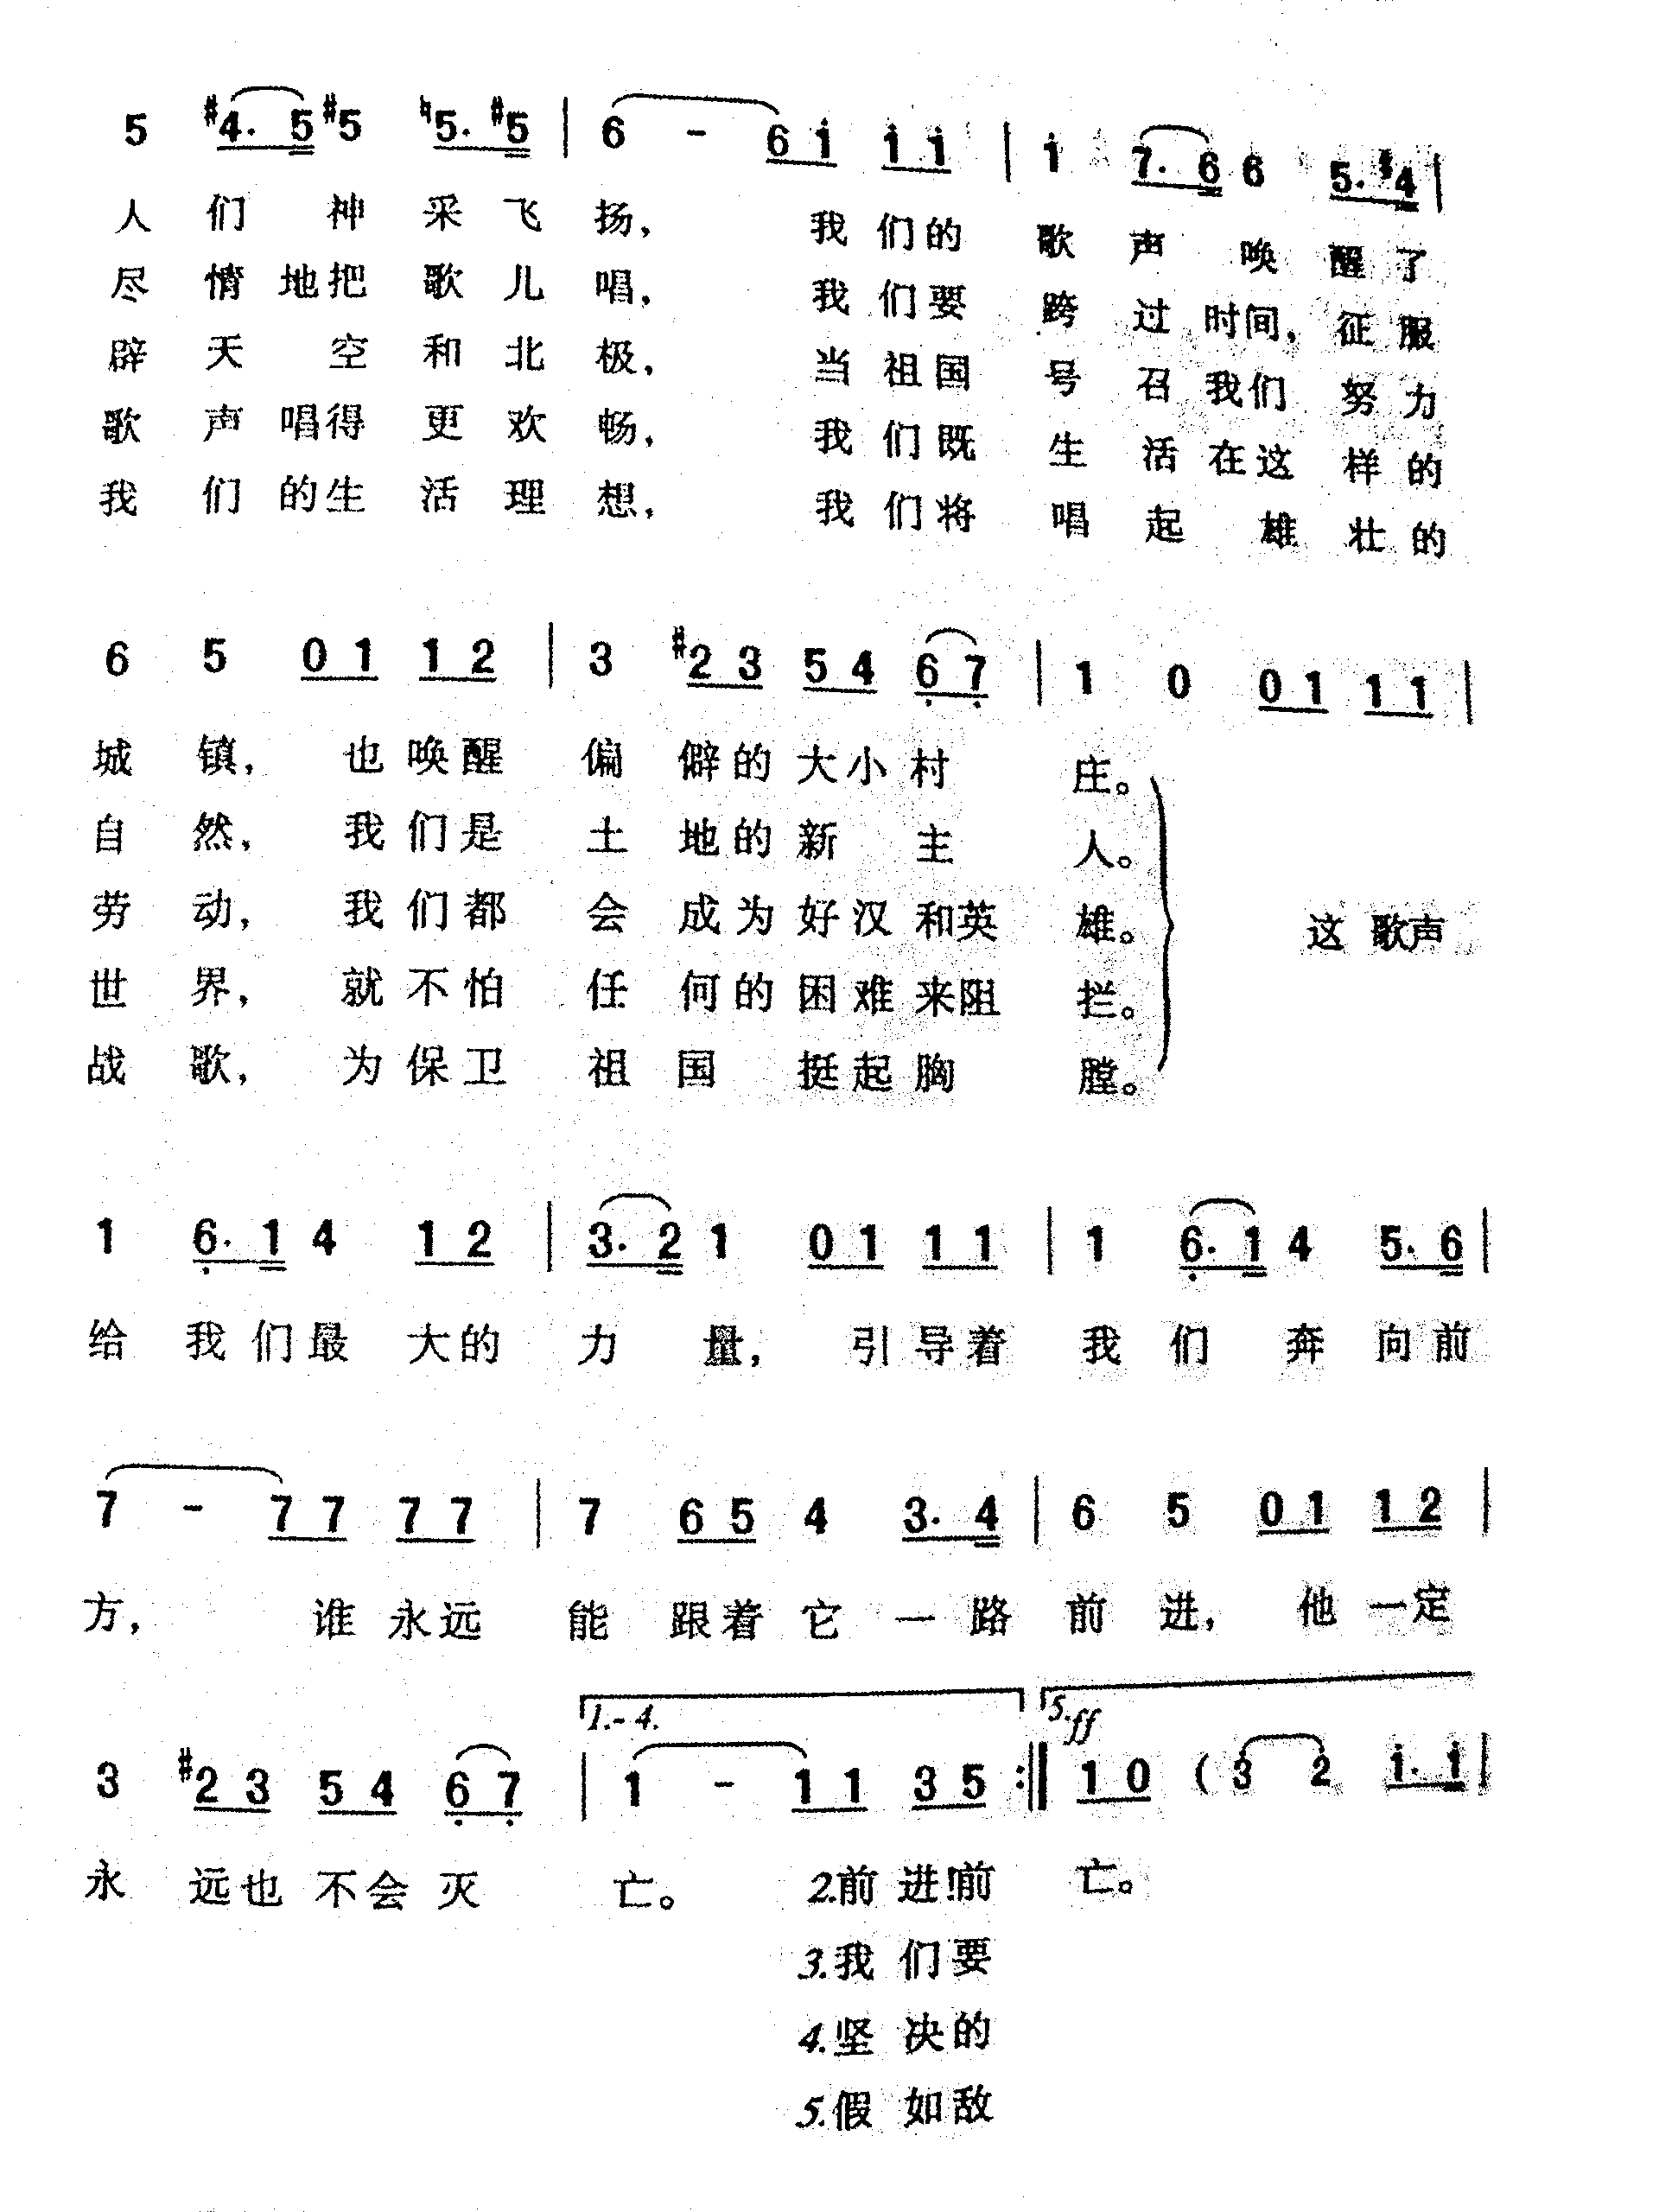 5 #4. 5 #5 ♮5. #5 | 6 - 6 1̇ 1̇ 1̇ | 1̇ 7. 6 6 5. #4 |
人 们 神 采 飞 扬， 我 们 的 歌 声 唤 醒 了
尽 情 地 把 歌 儿 唱， 我 们 要 跨 过 时 间， 征 服
辟 天 空 和 北 极， 当 祖 国 号 召 我 们 努 力
歌 声 唱 得 更 欢 畅， 我 们 既 生 活 在 这 样 的
我 们 的 生 活 理 想， 我 们 将 唱 起 雄 壮 的
6 5 0 1 1 2 | 3 #2 3 5 4 6̣ 7̣ | 1 0 0 1 1 1 |
城 镇， 也 唤 醒 偏 僻 的 大 小 村 庄。
自 然， 我 们 是 土 地 的 新 主 人。
劳 动， 我 们 都 会 成 为 好 汉 和 英 雄。 这 歌 声
世 界， 就 不 怕 任 何 的 困 难 来 阻 拦。
战 歌， 为 保 卫 祖 国 挺 起 胸 膛。
1 6̣. 1 4 1 2 | 3. 2 1 0 1 1 1 | 1 6̣. 1 4 5. 6 |
给 我 们 最 大 的 力 量， 引 导 着 我 们 奔 向 前
7 - 7 7 7 7 | 7 6 5 4 3. 4 | 6 5 0 1 1 2 |
方， 谁 永 远 能 跟 着 它 一 路 前 进， 他 一 定
1.- 4. 5. ff
3 #2 3 5 4 6̣ 7̣ | 1 - 1 1 3 5 :‖ 1 0 ( 3 2 1̇. 1̇ |
永 远 也 不 会 灭 亡。 2.前 进！前 亡。
3.我 们 要
4.坚 决 的
5.假 如 敌